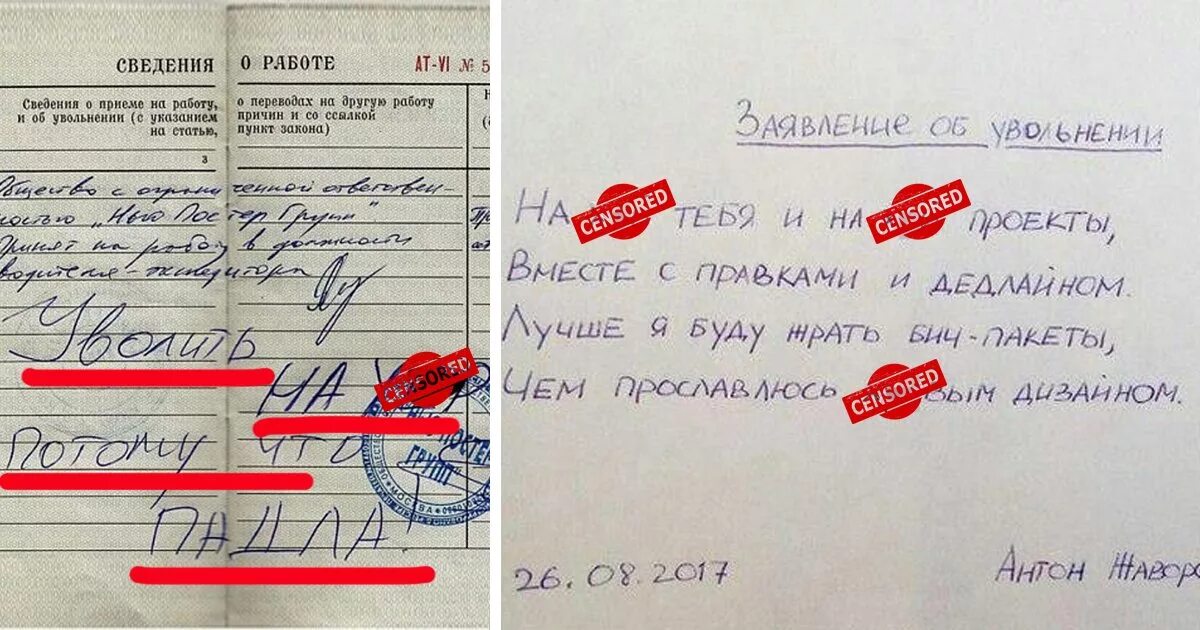 СВЕДЕНИЯ О РАБОТЕ AT-VI № 5
Сведения о приеме на работу, о переводах на другую работу
и об увольнении (с указанием причин и со ссылкой
на статью, пункт закона)
3
Общество с ограниченной ответствен-
ностью "Нью Постер Групп"
Принят на работу в должности
водителя-экспедитора
Уволить
НА CENSORED
ПОТОМУ ЧТО
ПАДЛА!
ПОСТЕР
ГРУПП
МОСКВА
Заявление об увольнении
На CENSORED тебя и на CENSORED проекты,
Вместе с правками и дедлайном.
Лучше я буду жрать бич-пакеты,
Чем прославлюсь CENSORED вым дизайном.
26.08.2017
Антон Жавор